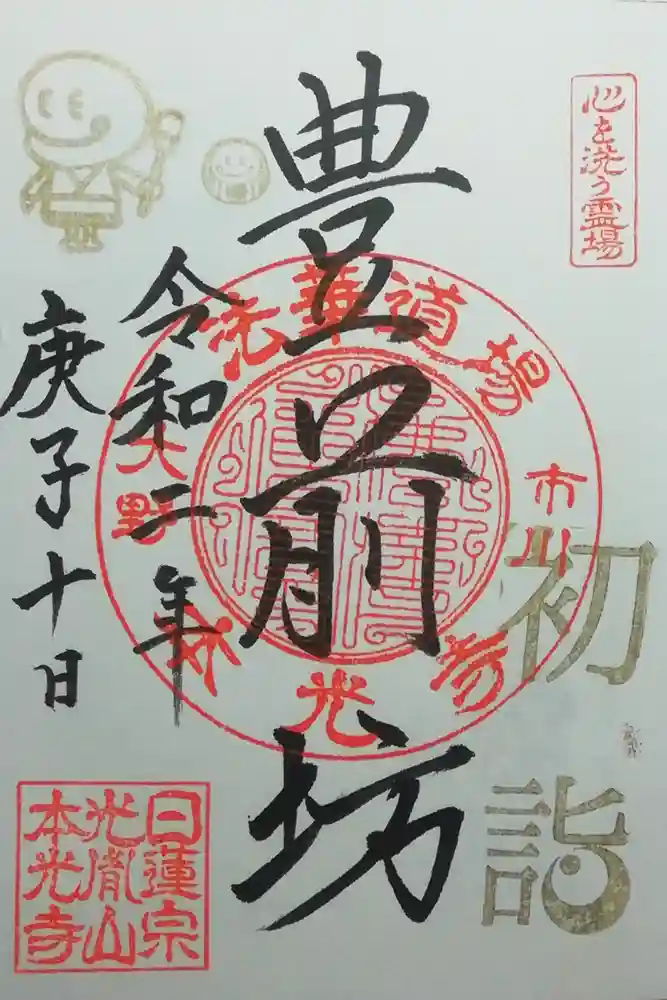 心を洗う霊場
初詣
豊前坊
令和二年
庚子十日
華道場
市川
大野
本光寺
日蓮宗
光胤山
本光寺